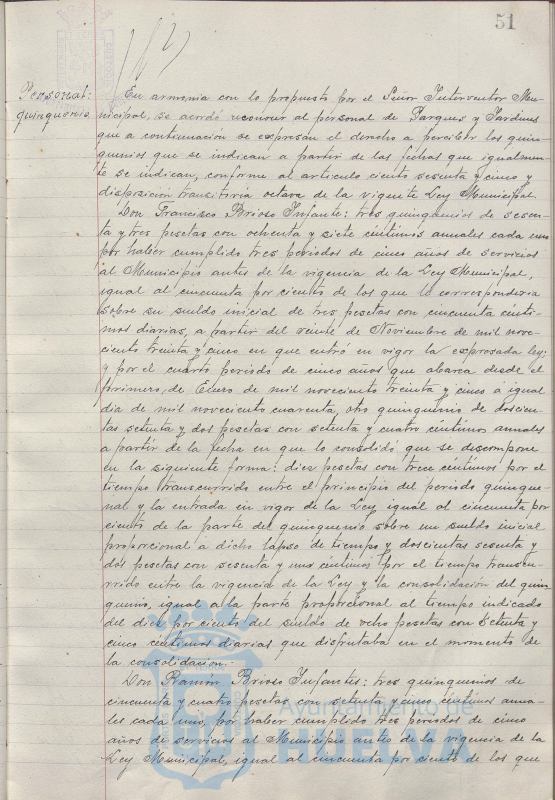 51
Personal:
quinquenio.
En armonia con lo propuesto por el Señor Interventor Mu-
nicipal, se acordó reconocer al personal de Parques y Jardines
que a continuación se expresan el derecho a percibir los quin-
quenios que se indican a partir de las fechas que igualmen-
te se indican, conforme al articulo ciento sesenta y cinco y
disposición transitoria octava de la vigente Ley Municipal.
Don Francisco Brioso Infante: tres quinquenios de sesen-
ta y tres pesetas con ochenta y siete céntimos anuales cada uno
por haber cumplido tres periodos de cinco años de servicios
al Municipio antes de la vigencia de la Ley Municipal,
igual al cincuenta por ciento de los que le corresponderia
sobre su sueldo inicial de tres pesetas con cincuenta cénti-
mos diarias, a partir del veinte de Noviembre de mil nove-
ciento treinta y cinco en que entró en vigor la expresada ley;
y por el cuarto periodo de cinco años que abarca desde el
primero, de Enero de mil noveciento treinta y cinco a igual
dia de mil noveciento cuarenta, otro quinquenio de doscien-
tas setenta y dos pesetas con setenta y cuatro céntimos anuales
a partir de la fecha en que lo consolidó que se descompone
en la siguiente forma: diez pesetas con trece céntimos por el
tiempo transcurrido entre el principio del periodo quinque-
nal y la entrada en vigor de la Ley igual al cincuenta por
ciento de la parte del quinquenio sobre un sueldo inicial
proporcional a dicho lapso de tiempo y doscientas sesenta y
dos pesetas con sesenta y un céntimos por el tiempo transcu-
rrido entre la vigencia de la Ley y la consolidación del quin-
quenio, igual a la parte proporcional al tiempo indicado
del diez por ciento del sueldo de ocho pesetas con setenta y
cinco céntimos diarias que disfrutaba en el momento de
la consolidación.-
Don Ramón Brioso Infantes: tres quinquenios de
cincuenta y cuatro pesetas con setenta y cinco céntimos anua-
les cada uno, por haber cumplido tres periodos de cinco
años de servicios al Municipio antes de la vigencia de la
Ley Municipal, igual al cincuenta por ciento de los que
Ayuntamiento de
HUELVA